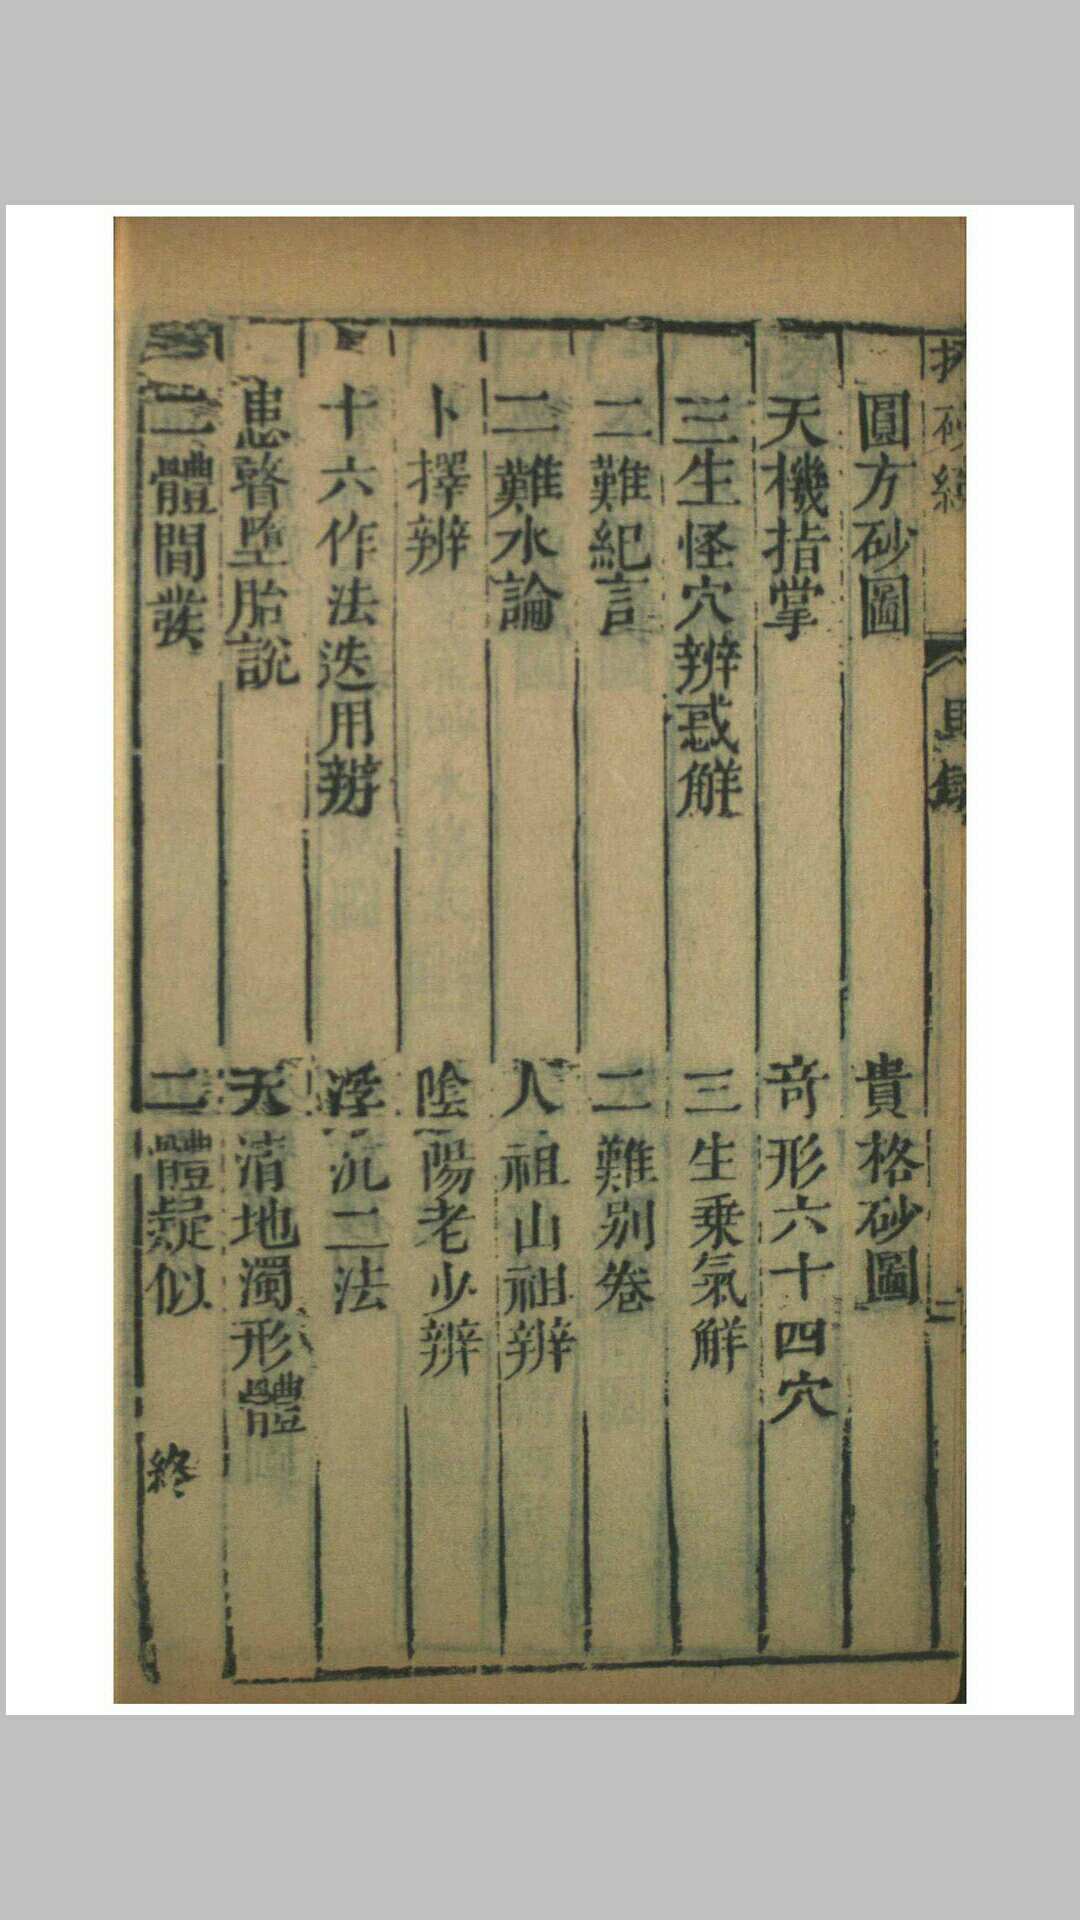 圓方砂圖 貴格砂圖
天機指掌 竒形六十四穴
三生怪穴辨惑解 三生乗氣解
二難紀言 二難别卷
二難水論 人祖山祖辨
卜擇辨 陰陽老少辨
十六作法迭用辨 浮沉二法
患瞽墮胎說 天清地濁形體
二體間發 二體疑似 終